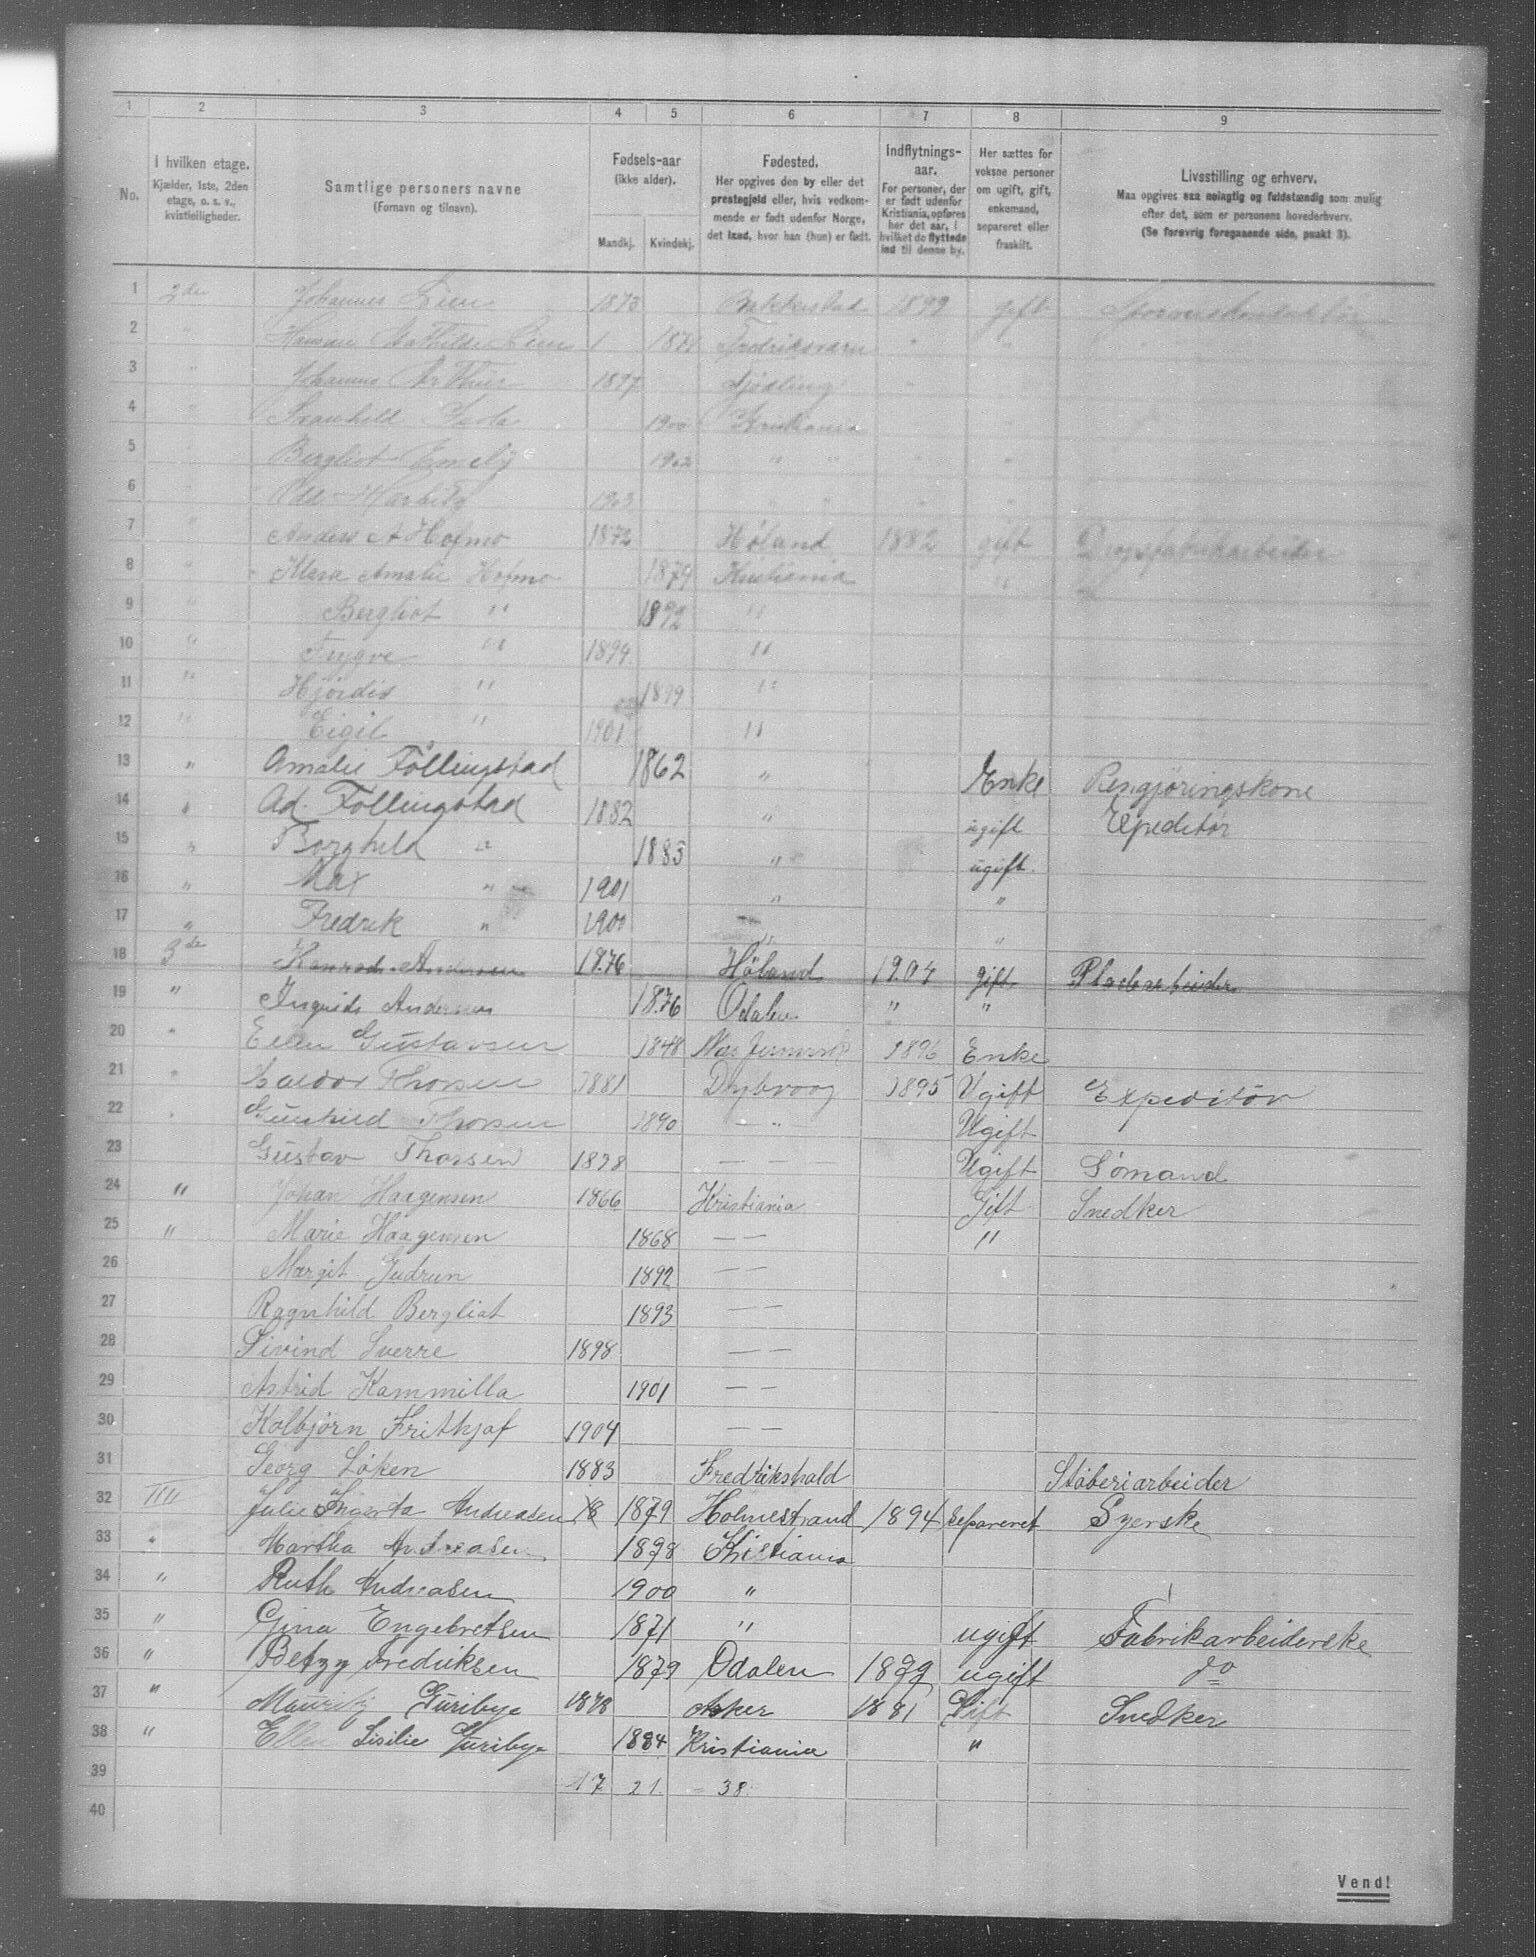 1 2 3 4 5 6 7 8 9
No.
I hvilken etage.
Kjælder, 1ste, 2den
etage, o. s. v.,
kvistleiligheder.
Samtlige personers navne
(Fornavn og tilnavn).
Fødsels-aar
(ikke alder).
Mandkj. Kvindekj.
Fødested.
Her opgives den by eller det
prestegjeld eller, hvis vedkom-
mende er født udenfor Norge,
det land, hvor han (hun) er født.
Indflytnings-
aar.
For personer, der
er født udenfor
Kristiania, opføres
her det aar, i
hvilket de flyttede
ind til denne by.
Her sættes for
voksne personer
om ugift, gift,
enkemand,
separeret eller
fraskilt.
Livsstilling og erhverv.
Maa opgives saa nøiagtig og fuldstændig som mulig
efter det, som er personens hovederhverv.
(Se forøvrig foregaaende side, punkt 3).
1 2de Johannes Lien 1873 1899 gift
2 " Mathilde Lien 1 Fredriksværn " "
3 " Johannes Arthur 1897 "
4 " 1900 Kristiania
5 " Bergliot Emely 1902 " "
6 " 1903 " "
7 " Anders A Hofmo 1872 Høland 1882 gift
8 " Klara Amalie Hofmo 1879 Kristiania "
9 " Bergliot " 1892 "
10 " Trygve " 1894 "
11 " Hjørdis " 1899 "
12 " Eigil " 1901 "
13 " Amalie Føllingstad 1862 " Enke Rengjøringskone
14 " Ad. Føllingstad 1882 " ugift Expeditør
15 " Borghild " 1883 " ugift.
16 " Max " 1901 " "
17 " Fredrik " 1900 " "
18 3de Konrad Andersen 1876 Høland 1904 gift
19 " Ingrid Andersen 1876 Odalen " "
20 " Gustavsen 1848 1896 Enke
21 " Thorsen 1881 Dybvaag 1895 Ugift Expeditør
22 " Gunhild Thorsen 1890 — " Ugift
23 Gustav Thorsen 1878 — — — Ugift Sømand
24 " Johan Haagensen 1866 Kristiania Gift Snedker
25 " Marie Haagensen 1868 — — "
26 Margit Gudrun 1892 — —
27 Ragnhild Bergliot 1893 — —
28 Eivind Sverre 1898 — —
29 Astrid Kammilla 1901 — —
30 Kolbjørn Frithjof 1904 — —
31 Georg Løken 1883 Fredrikshald Støberiarbeider
32 Julie Andreasen 18 1879 Holmestrand 1894 separeret Syerske
33 " Martha Andreasen 1898 Kristiania
34 " Ruth Andreasen 1900 "
35 " Gina Engebretsen 1871 " ugift Fabrikarbeiderske
36 " Betzy Fredriksen 1879 Odalen 1899 ugift do
37 " Mauritz Guribye 1878 Asker 1881 Gift Snedker
38 " Ellen Sisilie Guribye 1884 Kristiania "
39 17 21 - 38.
40
Vend!